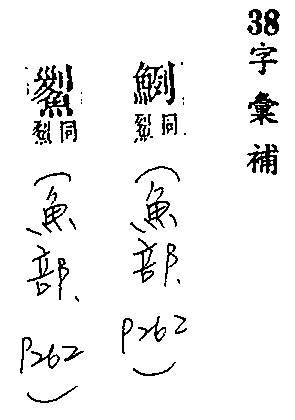 38字彙補
同
(魚部、P262)
同
(魚部、P262)